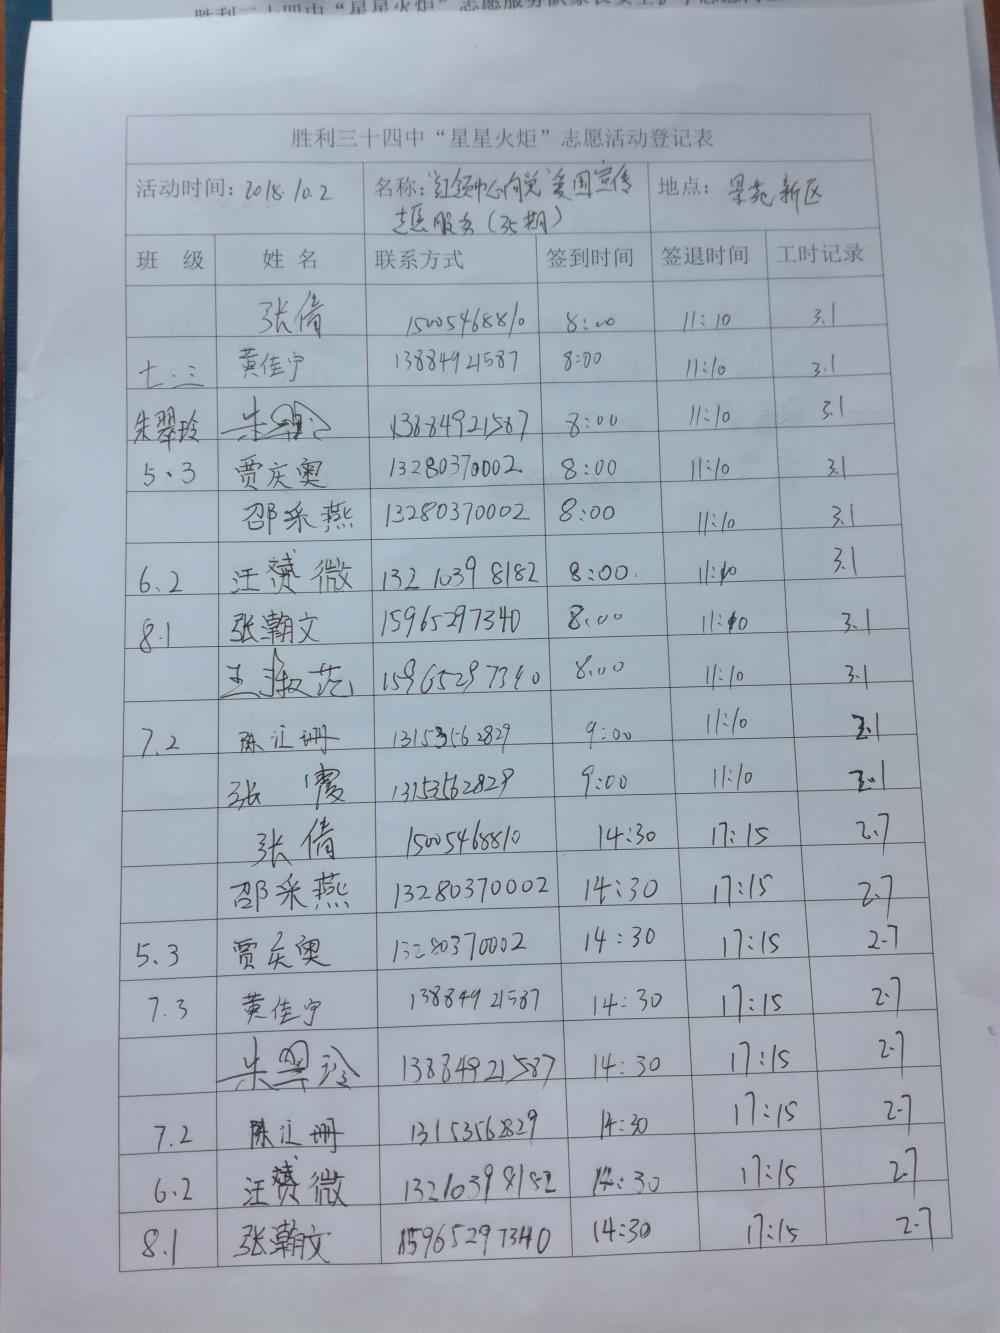 胜利三十四中“星星火炬”志愿活动登记表
活动时间：2018.10.2 名称：“红领巾心向党”爱国宣传 地点：景苑新区
志愿服务（35期）
班 级 姓 名 联系方式 签到时间 签退时间 工时记录
张倩 15005468810 8:00 11:10 3.1
七.三 黄佳宁 13884921587 8:00 11:10 3.1
朱翠玲 朱翠玲 13884921587 8:00 11:10 3.1
5.3 贾庆奥 13280370002 8:00 11:10 3.1
邵采燕 13280370002 8:00 11:10 3.1
6.2 汪赟微 13210398182 8:00 11:10 3.1
8.1 张瀚文 15965297340 8:00 11:10 3.1
王淑范 15965297340 8:00 11:10 3.1
7.2 陈让珊 13153562829 9:00 11:10 2.1
张 13153562829 9:00 11:10 2.1
张倩 15005468810 14:30 17:15 2.7
邵采燕 13280370002 14:30 17:15 2.7
5.3 贾庆奥 13280370002 14:30 17:15 2.7
7.3 黄佳宁 13884921587 14:30 17:15 2.7
朱翠玲 13884921587 14:30 17:15 2.7
7.2 陈让珊 13153562829 14:30 17:15 2.7
6.2 汪赟微 13210398182 14:30 17:15 2.7
8.1 张瀚文 15965297340 14:30 17:15 2.7